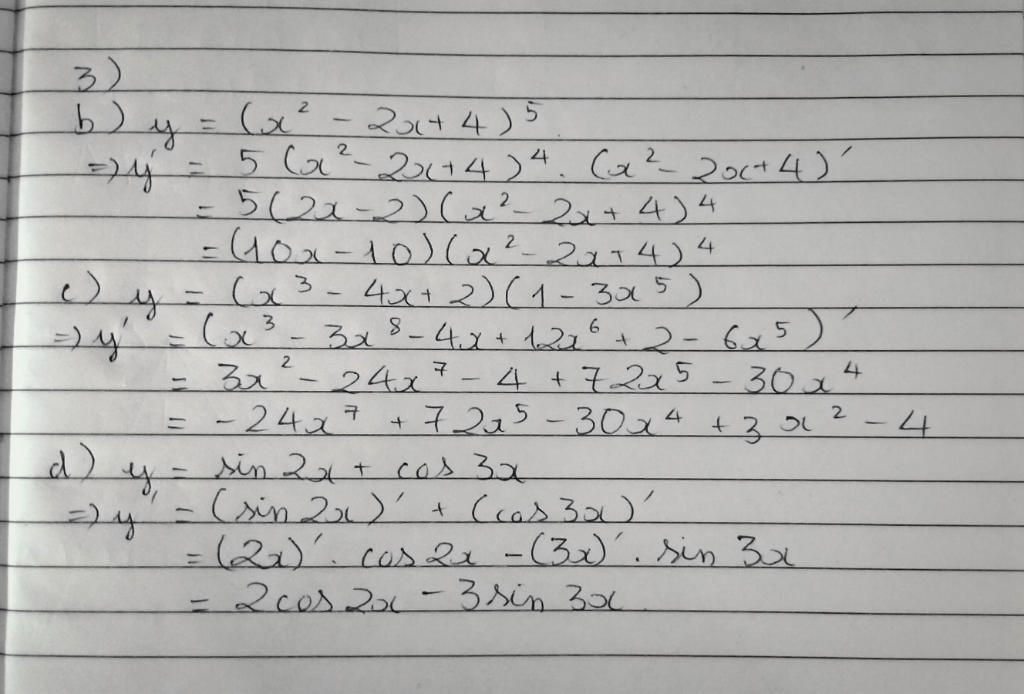 3)
b) y = (x² - 2x + 4)⁵
=> y' = 5 (x² - 2x + 4)⁴ . (x² - 2x + 4)'
= 5(2x - 2)(x² - 2x + 4)⁴
= (10x - 10)(x² - 2x + 4)⁴
c) y = (x³ - 4x + 2)(1 - 3x⁵)
=> y' = (x³ - 3x⁸ - 4x + 12x⁶ + 2 - 6x⁵)'
= 3x² - 24x⁷ - 4 + 72x⁵ - 30x⁴
= -24x⁷ + 72x⁵ - 30x⁴ + 3x² - 4
d) y = sin 2x + cos 3x
=> y' = (sin 2x)' + (cos 3x)'
= (2x)' . cos 2x - (3x)' . sin 3x
= 2cos 2x - 3 sin 3x